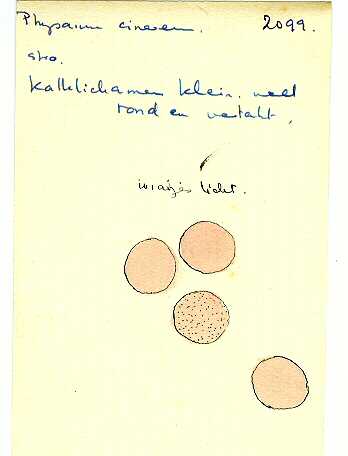 Physarum cinereum. 2099.
stro.
Kalklichamen klein. veel
rond en vertakt.
licht.